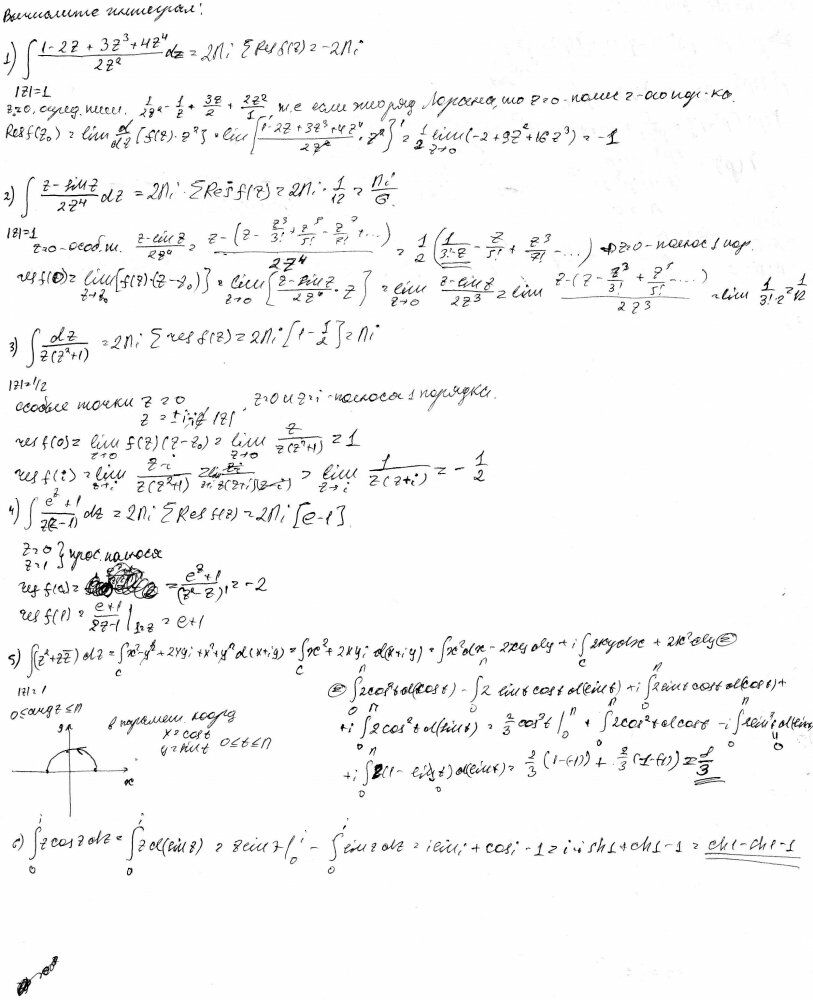 Вычислите интеграл:
1) ∫ (1-2z+3z³+4z⁴)/(2z²) dz = 2πi ΣRes f(z) = -2πi
|z|=1
z=0, 1/(2z²) - 1/z + 3z/2 + 2z²/1 т.е. если ряд Лорана, то z=0 - полюс 2-ого пор-ка.
Res f(z₀) = lim d/dz {f(z)·z²} = lim {(1-2z+3z³+4z⁴)/(2z²) · z²}' = 1/2 lim z→0 (-2+9z²+16z³) = -1
2) ∫ (z-sin z)/(2z⁴) dz = 2πi · ΣRes f(z) = 2πi · 1/12 = πi/6.
|z|=1
z=0 - особ. т. (z-sin z)/(2z⁴) = (z-(z - z³/3! + z⁵/5! - z⁷/7! + ...))/(2z⁴) = 1/2 (1/(3!·z) - z/5! + z³/7! - ...) ⇒ z=0 - полюс 1 пор.
res f(0) = lim z→z₀ [f(z)·(z-z₀)] = lim z→0 {(z-sin z)/(2z⁴) · z} = lim z→0 (z-sin z)/(2z³) = lim (z-(z - z³/3! + z⁵/5! - ...))/(2z³) = lim 1/(3!·2) = 1/12
3) ∫ dz/(z(z²+1)) = 2πi Σ res f(z) = 2πi [1 - 1/2] = πi
|z|=1/2
особые точки z=0 z=0 и z=i - полюса 1 порядка.
z = ±i, |z|
res f(0) = lim z→0 f(z)(z-z₀) = lim z→0 z/(z(z²+1)) = 1
res f(i) = lim z→i (z-i)/(z(z²+1)) = lim z→i 1/(z(z+i)) = -1/2
4) ∫ (e^z+1)/(z(z-1)) dz = 2πi ΣRes f(z) = 2πi [e-1]
z=0 } прос. полюса
z=1
res f(0) = (e^z+1)/(z²-z)' = -2
res f(1) = (e+1)/(2z-1) |1=z = e+1
5) ∫(z²+z z̄) dz = ∫ c x²-y²+2xyi+x²+y² d(x+iy) = ∫ c x²+2xyi d(x+iy) = ∫ x²dx - 2xy dy + i ∫ 2xy dx + 2x²dy ⊜
|z|=1
0≤arg z≤π
⊜ ∫ 2cos²t d(cos t) - ∫ 2 sin t cos t d(sin t) + i ∫ 2 sin t cos t d(cos t) +
y
в параметм. коорд
x=cos t
y=sin t 0≤t≤π
x
+ i ∫ 2cos²t d(sin t) = 2/3 cos³t |₀^π + ∫ 2cos²t d cos t - i ∫ 2 sin²t d(sin t)
+ i ∫ 2(1-sin²t) d(sin t) = 2/3 (1-(-1)) + 2/3 (1-(-1)) = 8/3
6) ∫₀^i z cos z dz = ∫₀^i z d(sin z) = z sin z |₀^i - ∫₀^i sin z dz = i sin i + cos i - 1 = i·i sh1 + ch1 - 1 = ch1-sh1-1